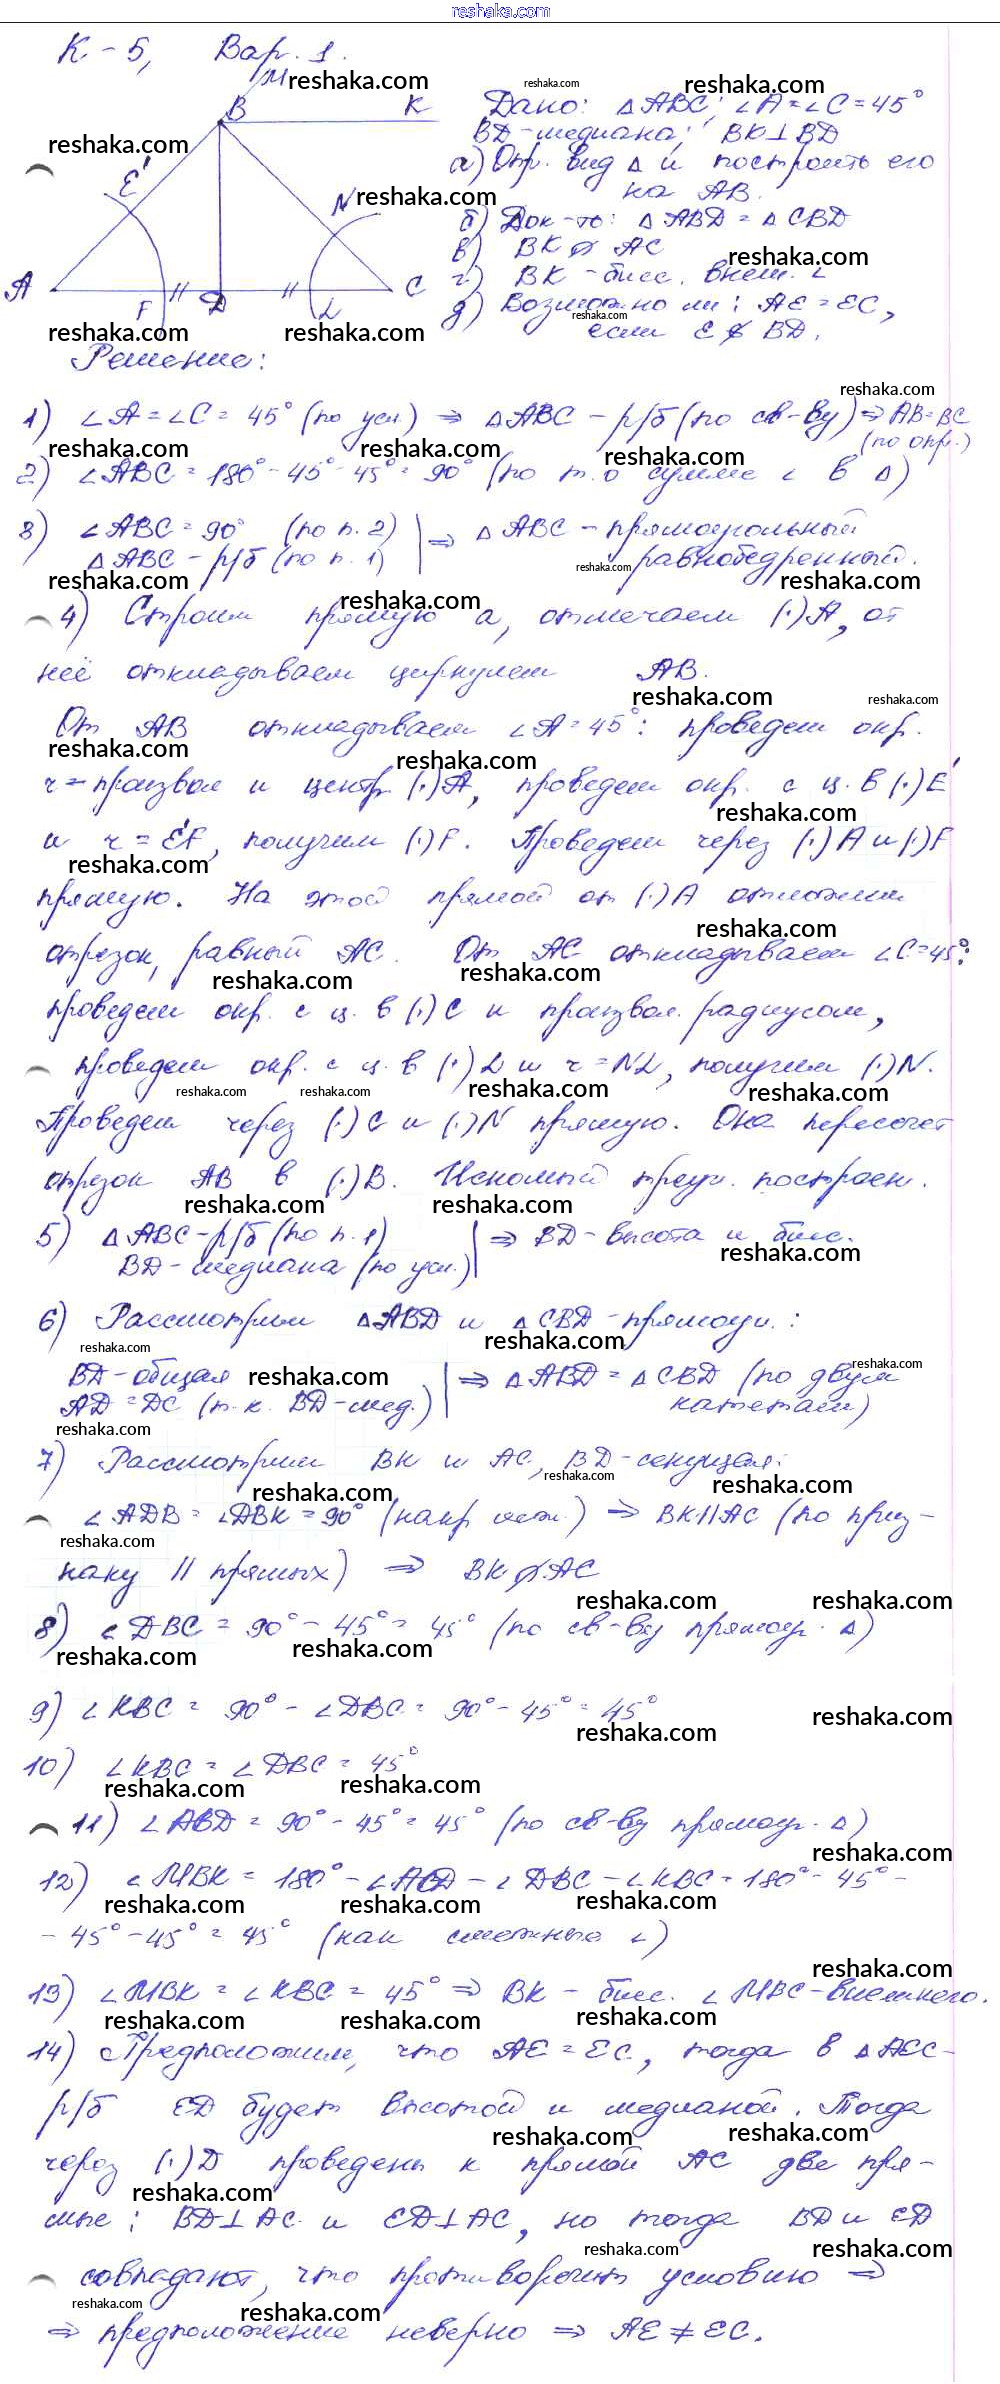 reshaka.com
К – 5, Вар. 1.
M
B
K
E'
N
A
F
D
L
C
Дано: △ABC; ∠A = ∠C = 45°
BD – медиана; BK ⊥ BD
а) Опр. вид △ и построить его
на AB.
б) Док-ть: △ABD = △CBD
в) BK ∅ AC
г) BK – бисс. внеш. ∠
д) Возможно ли: AE = EC,
если E ∉ BD.
Решение:
1) ∠A = ∠C = 45° (по усл.) ⇒ △ABC – р/б (по св-ву) ⇒ AB = BC
(по опр.)
2) ∠ABC = 180° – 45° – 45° = 90° (по т. о сумме ∠ в △)
3) ∠ABC = 90° (по п. 2) | ⇒ △ABC – прямоугольный
△ABC – р/б (по п. 1) равнобедренный.
4) Строим прямую a, отмечаем (·)A, от
неё откладываем циркулем AB.
От AB откладываем ∠A = 45°: проведем окр.
r = произвол и центр (·)A, проведем окр. с ц. в (·)E'
и r = E'F, получим (·)F. Проведем через (·)A и (·)F
прямую. На этой прямой от (·)A отложим
отрезок, равный AC. От AC откладываем ∠C = 45°:
проведем окр. с ц. в (·)C и произвол. радиусом,
проведем окр. с ц. в (·)L и r = NL, получим (·)N.
Проведем через (·)C и (·)N прямую. Она пересечет
отрезок AB в (·)B. Искомый треуг. построен.
5) △ABC – р/б (по п. 1) | ⇒ BD – высота и бисс.
BD – медиана (по усл.)
6) Рассмотрим △ABD и △CBD – прямоуг.:
BD – общая | ⇒ △ABD = △CBD (по двум
AD = DC (т.к. BD – мед.) катетам)
7) Рассмотрим BK и AC, BD – секущая:
∠ADB = ∠DBK = 90° (накр. леж.) ⇒ BK || AC (по приз-
наку || прямых) ⇒ BK ∅ AC
8) ∠DBC = 90° – 45° = 45° (по св-ву прямоуг. △)
9) ∠KBC = 90° – ∠DBC = 90° – 45° = 45°
10) ∠KBC = ∠DBC = 45°
11) ∠ABD = 90° – 45° = 45° (по св-ву прямоуг. △)
12) ∠MBK = 180° – ∠ABD – ∠DBC – ∠KBC = 180° – 45° –
– 45° – 45° = 45° (как смежные ∠)
13) ∠MBK = ∠KBC = 45° ⇒ BK – бисс. ∠MBC – внешнего.
14) Предположим, что AE = EC, тогда в △AEC –
р/б ED будет высотой и медианой. Тогда
через (·)D проведены к прямой AC две пря-
мые: BD ⊥ AC и ED ⊥ AC, но тогда BD и ED
совпадают, что противоречит условию ⇒
⇒ предположение неверно ⇒ AE ≠ EC.